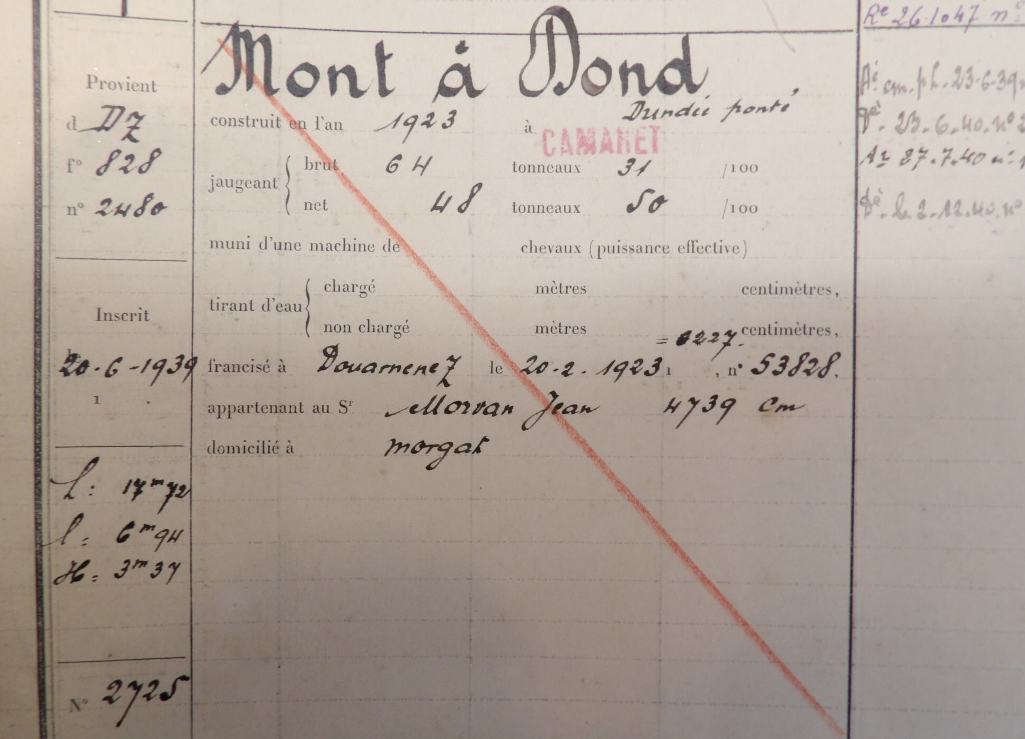 Mont à Dond
Provient
d DZ
f° 828
n° 2480
Inscrit
20-6-1939
L: 17m72
l: 6m94
H: 3m37
N° 2725
Dundée ponté
construit en l'an 1923 à CAMARET
jaugeant { brut 64 tonneaux 31 /100
net 48 tonneaux 50 /100
muni d'une machine de chevaux (puissance effective)
tirant d'eau { chargé mètres centimètres,
non chargé mètres centimètres,
francisé à Douarnenez le 20-2-1923, n° 53828.
appartenant au Sr Morvan Jean 4739 Cm
domicilié à morgat
Re 26.10.47 n°
Aé cm. ph. 23-6-39
Dé. 23.6.40. n° 2
Ar 27.7.40 n°
Dé. le 2.12.40. n°